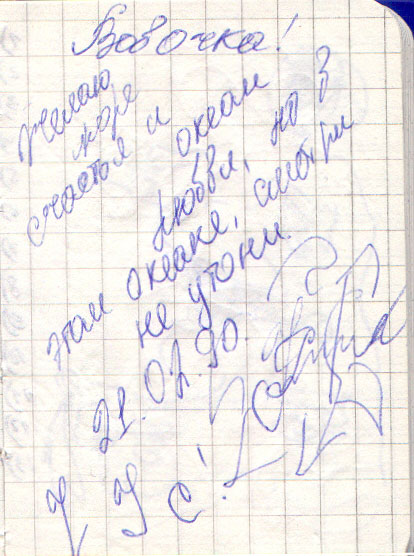 Вовочка!
Желаю
море
счастья и океан
любви, но в
этом океане, смотри
не утони.
21.02.90.